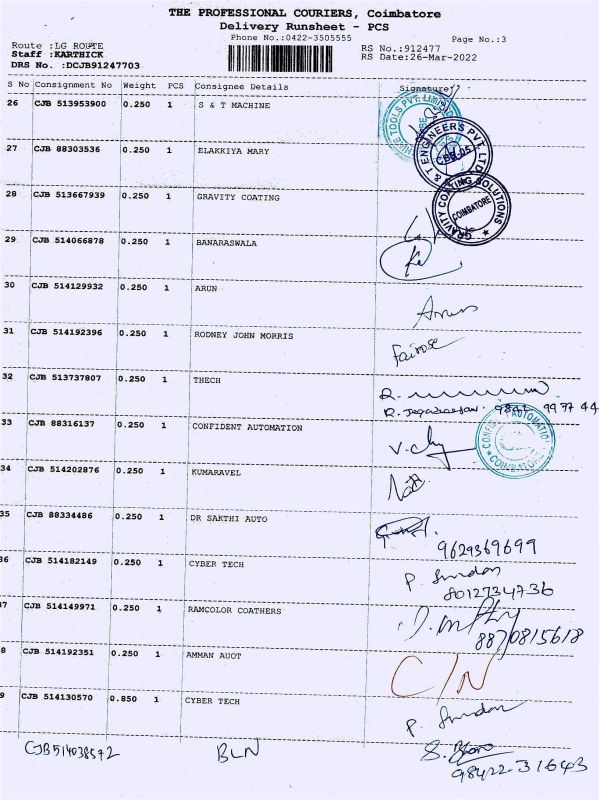 THE PROFESSIONAL COURIERS, Coimbatore
Delivery Runsheet - PCS
Phone No.:0422-3505555 Page No.:3
Route :LG ROUTE RS No.:912477
Staff :KARTHICK RS Date:26-Mar-2022
DRS No. :DCJB91247703
S No Consignment No Weight PCS Consignee Details Signature
26 CJB 513953900 0.250 1 S & T MACHINE
27 CJB 88303536 0.250 1 ELAKKIYA MARY
28 CJB 513667939 0.250 1 GRAVITY COATING
GRAVITY COATING SOLUTIONS
COIMBATORE
29 CJB 514066878 0.250 1 BANARASWALA
30 CJB 514129932 0.250 1 ARUN
Arun
31 CJB 514192396 0.250 1 RODNEY JOHN MORRIS
Fairose
32 CJB 513737807 0.250 1 THECH
33 CJB 88316137 0.250 1 CONFIDENT AUTOMATION
COIMBATORE
34 CJB 514202876 0.250 1 KUMARAVEL
35 CJB 88334486 0.250 1 DR SAKTHI AUTO
9629369699
36 CJB 514182149 0.250 1 CYBER TECH
8012734736
37 CJB 514149971 0.250 1 RAMCOLOR COATHERS
8870815618
8 CJB 514192351 0.250 1 AMMAN AUOT
C/N
9 CJB 514130570 0.850 1 CYBER TECH
CJB514038572 BLN
98422-31643